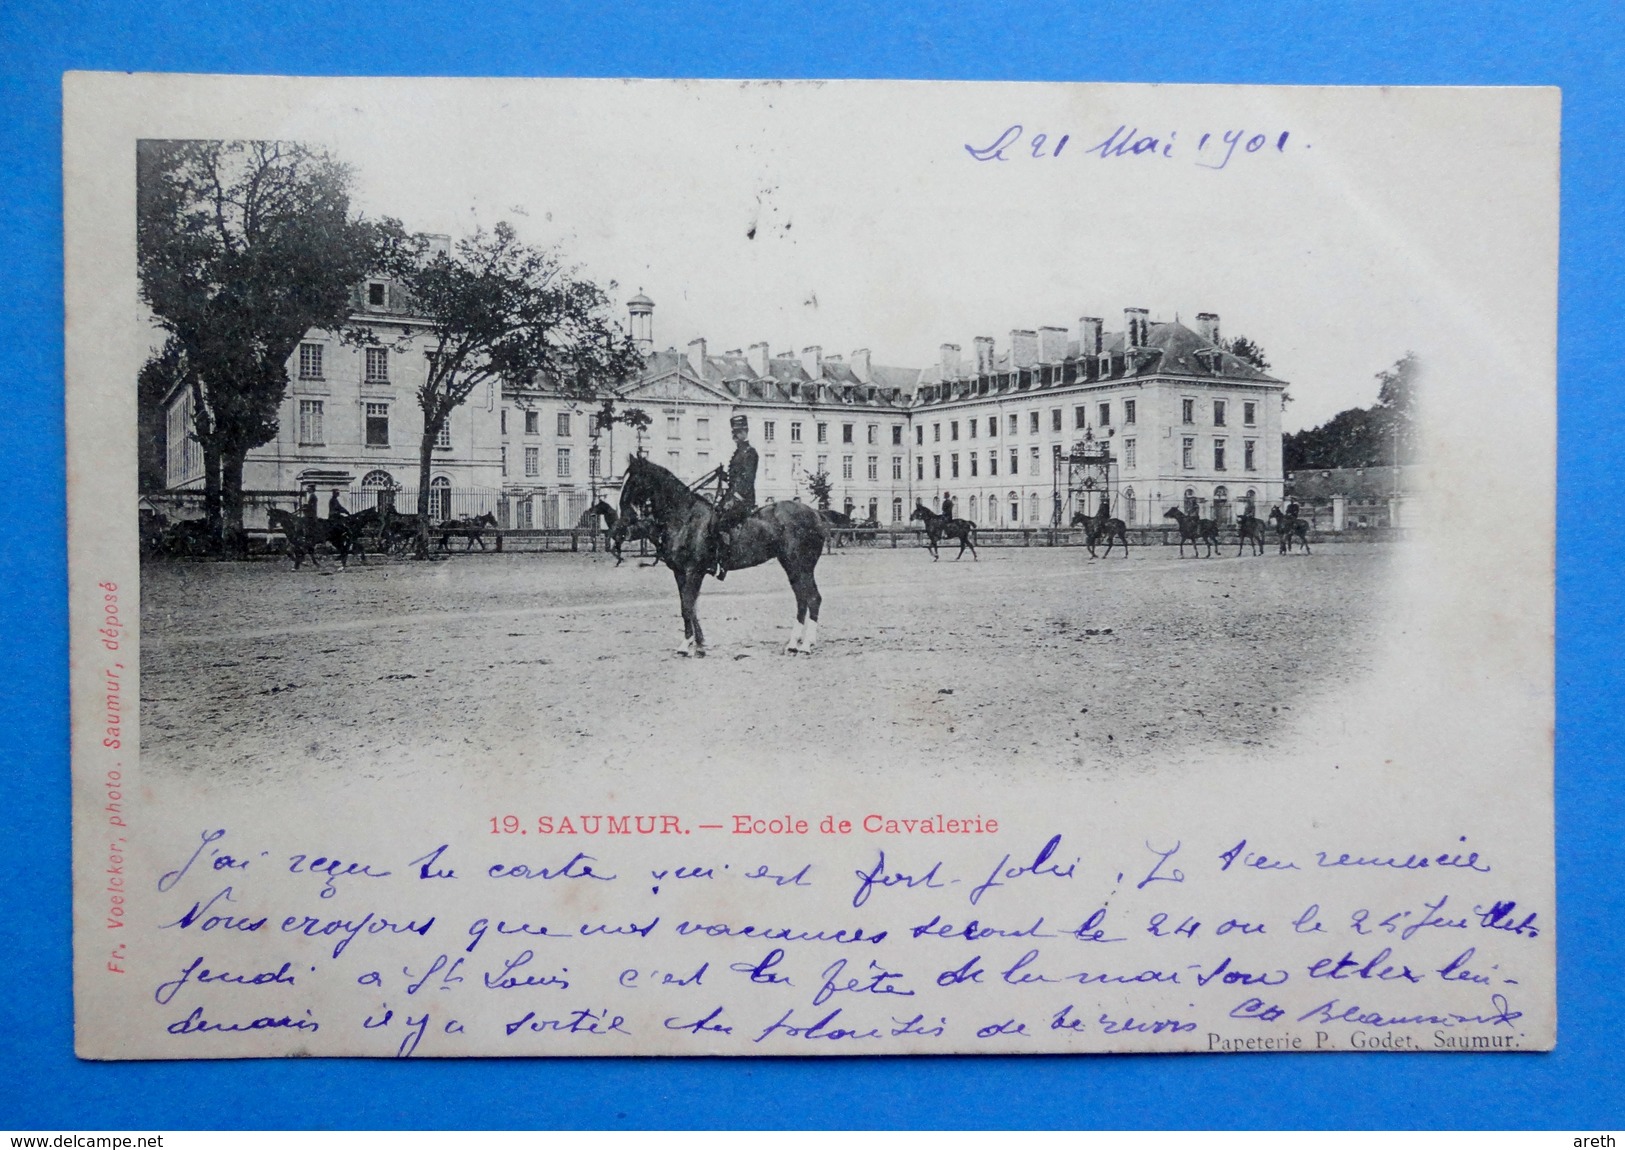 Le 21 Mai 1901.
Fr. Voelcker, photo. Saumur, déposé
19. SAUMUR. — Ecole de Cavalerie
J'ai reçu ta carte qui est fort jolie. Je t'en remercie
Nous croyons que nos vacances seront le 24 ou le 25 Juillet.
jeudi à St Louis c'est la fête de la maison et les len-
demain il y a sortie au plaisir de te revoir
Papeterie P. Godet, Saumur.
www.delcampe.net
areth